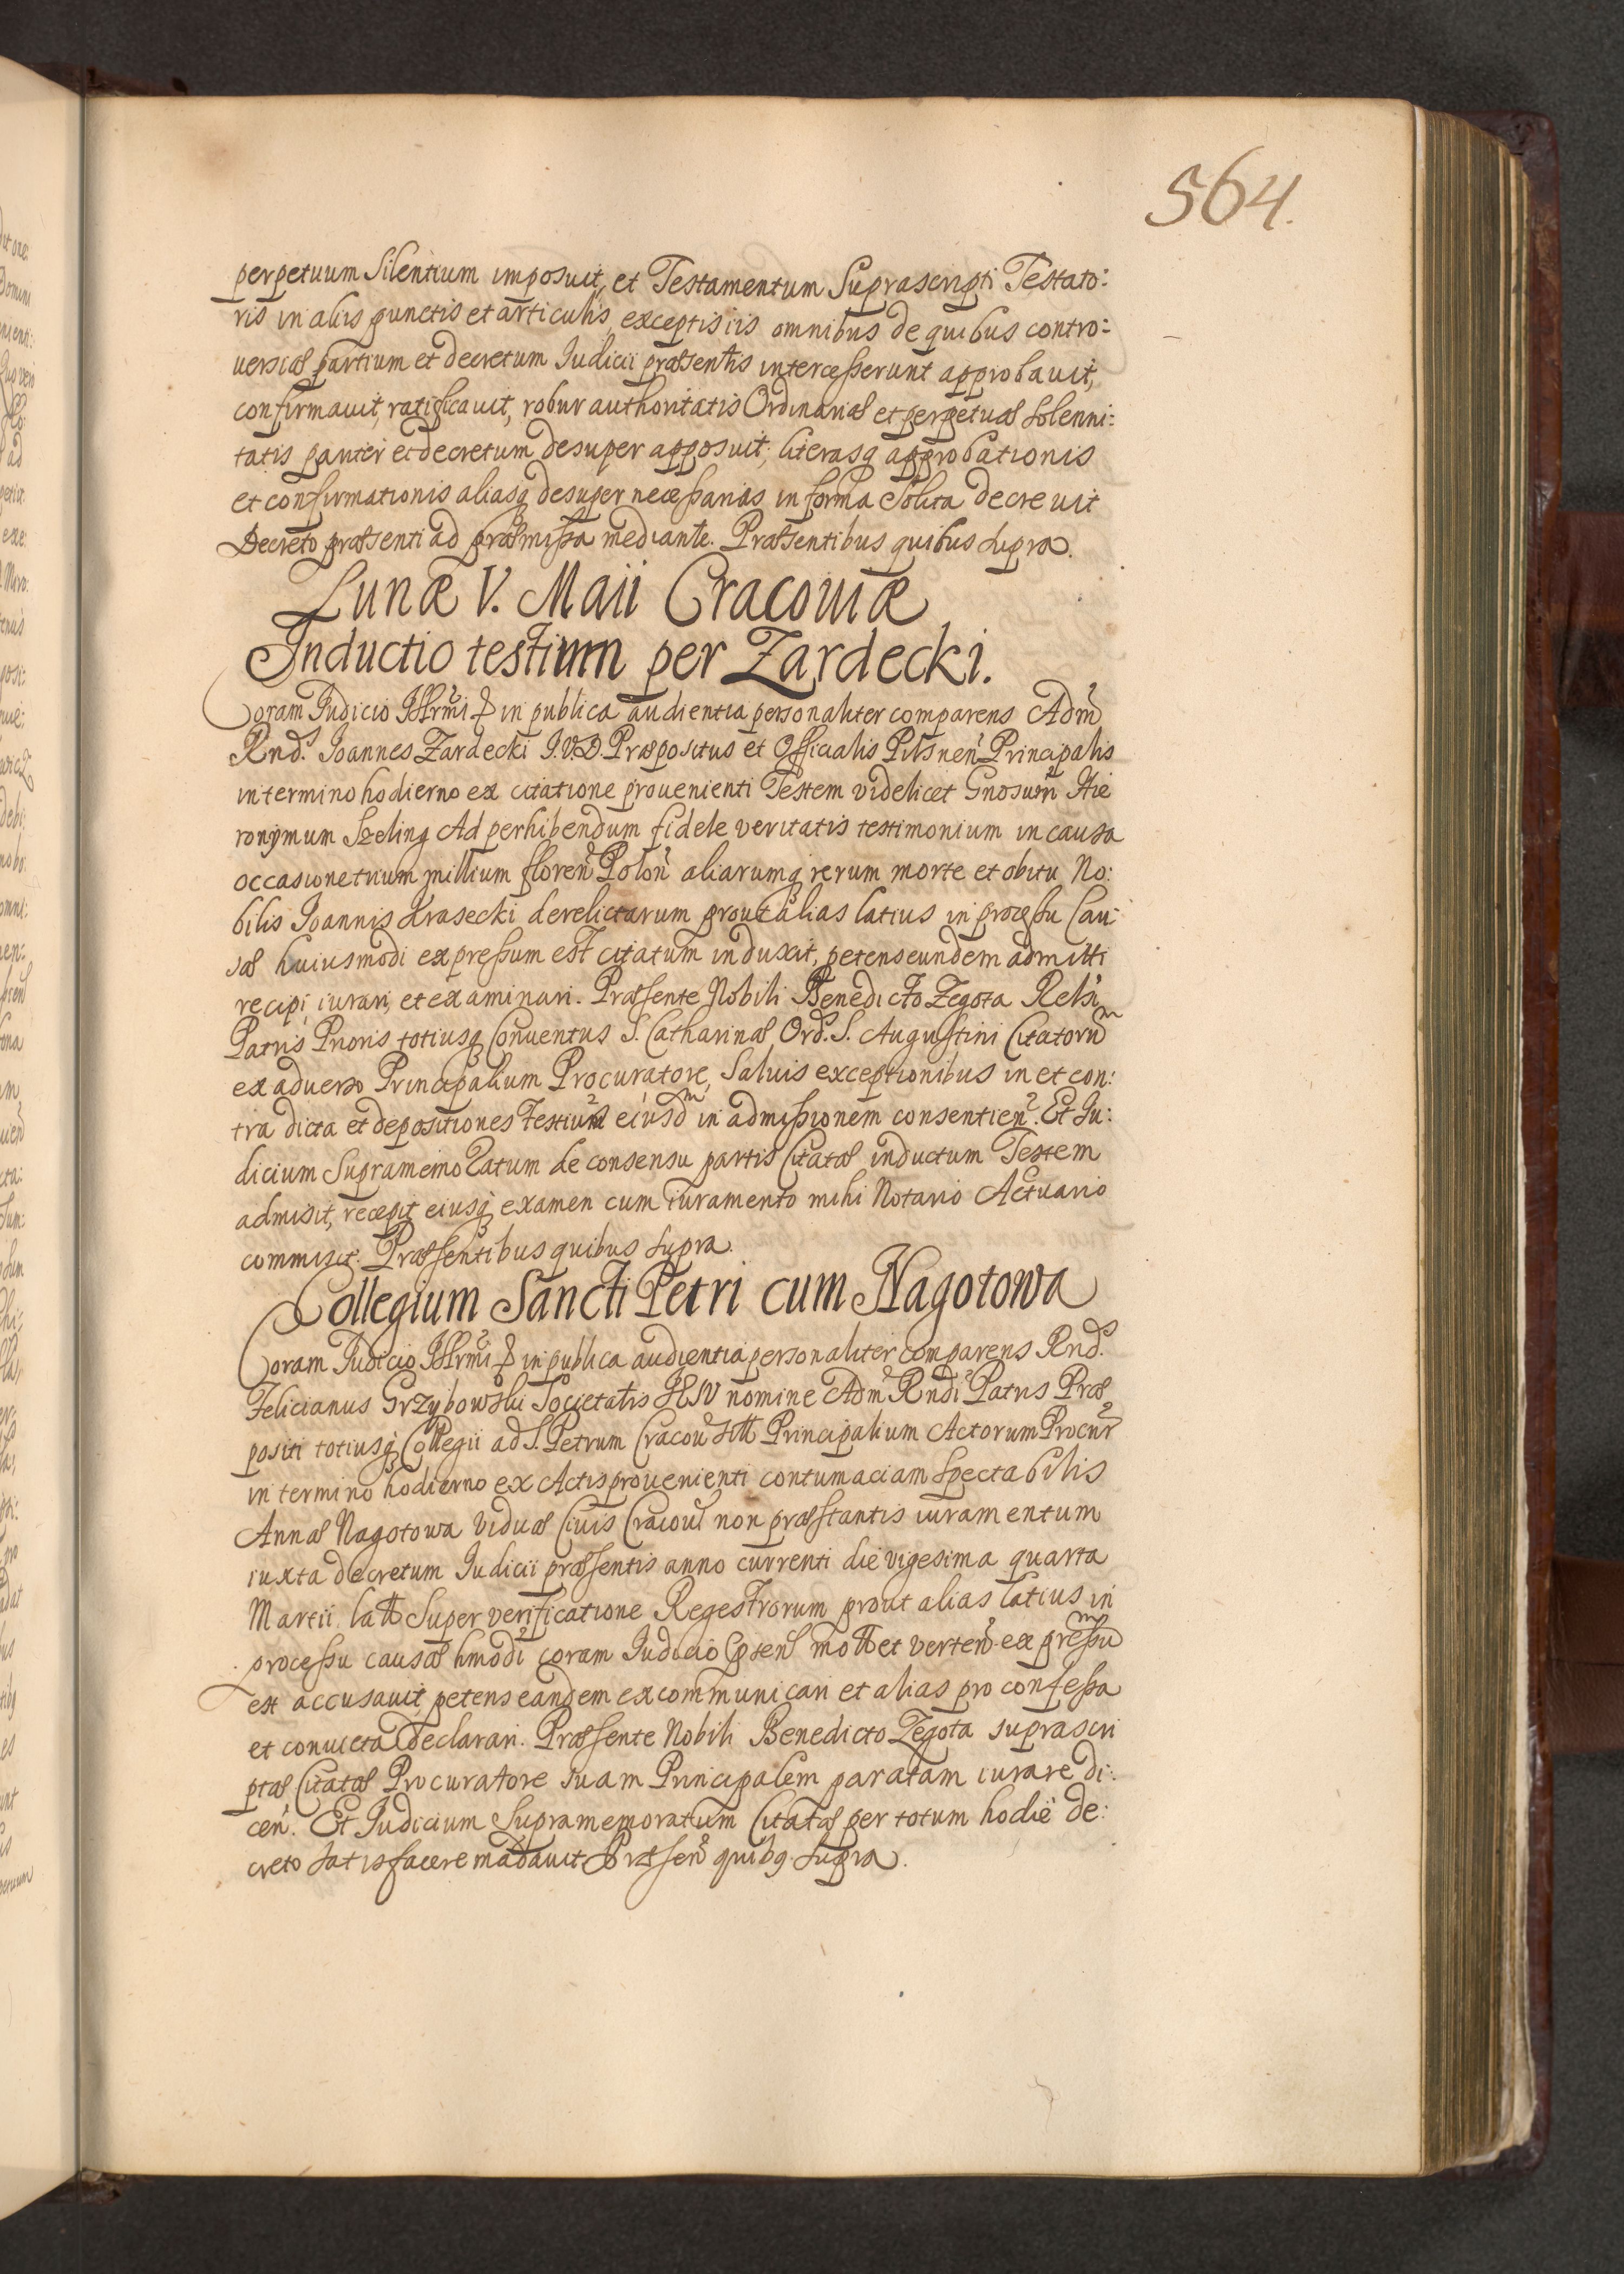 564.
perpetuum Silentium imposuit, et Testamentum Suprascripti Testato:
ris in aliis punctis et articulis, exceptis iis omnibus de quibus contro:
uersiæ partium et decretum Iudicii præsentis intercesserunt approbauit,
confirmauit, ratificauit, robur authoritatis Ordinariæ et perpetuæ solenni:
tatis pariter et decretum desuper apposuit; literasq approbationis
et confirmationis aliasq desuper necessarias in forma Solita decreuit
Decreto præsenti ad præmissa mediante. Præsentibus quibus supra.
Lunæ V. Maii Cracouiæ
Inductio testium per Zardecki.
Coram Iudicio Illrmi & in publica audientia personaliter comparens Adm
Rnds. Ioannes Zardecki I.V.D. Præpositus et Officialis Pilsnen Principalis
in termino hodierno ex citatione prouenienti Testem videlicet Gnosum Hie
ronymum Szeling Ad perhibendum fidele veritatis testimonium in causa
occasione trium millium floren Polon aliarumq rerum morte et obitu No:
bilis Ioannis Krasecki derelictarum prout alias latius in processu Cau:
sæ huiusmodi expressum est citatum induxit, petens eundem admitti
recipi, iurari, et examinari. Præsente Nobili Benedicto Zegota Relsi
Patris Prioris totiusq Conuentus S. Catharinæ Ord. S. Augustini Citatorum
ex aduerso Principalium Procuratore, Saluis exceptionibus in et con:
tra dicta et depositiones Testium eiusdm in admissionem consentien. Et Iu:
dicium Supramemoratum de consensu partis Citatæ inductum Testem
admisit, recepit eiusq examen cum iuramento mihi Notario Actuario
commisit. Præsentibus quibus supra.
Collegium Sancti Petri cum Nagotowa
Coram Iudicio Illrmi & in publica audientia personaliter comparens Rnds.
Felicianus Grzybowski Societatis IESV nomine Adm Rndi Patris Præ
positi totiusq Collegii ad S. Petrum Cracou Principalium Actorum Procur
in termino hodierno ex Actis prouenienti contumaciam Spectabilis
Annæ Nagotowa Viduæ Ciuis Cracou non præstantis iuramentum
iuxta decretum Iudicii præsentis anno currenti die vigesima quarta
Martii latt Super verificatione Regestrorum prout alias latius in
processu causæ hmodi coram Iudicio psen mott et verten expressum
est accusauit, petens eandem excommunicari et alias pro confessa
et conuicta declarari. Præsente Nobili Benedicto Zegota suprascri
ptæ Citatæ Procuratore suam Principalem paratam iurare di:
cen. Et Iudicium Supramemoratum Citatæ per totum hodie de:
creto satisfacere madauit Præsen quibq supra.